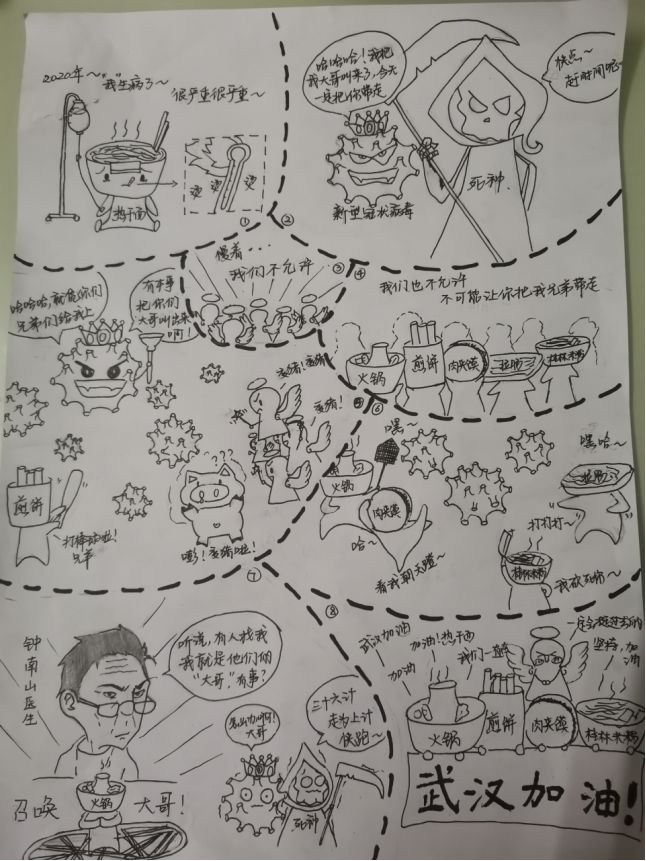 2020年~
"我生病了~
很严重很严重~
热干面
烫
烫
烫
①
②
哈哈哈！我把
我大哥叫来了，今天
一定把你带走
快点~
赶时间呢~
死神.
新型冠状病毒
慢着...
我们不允许
③
④
我们也不允许
不可能让你把我兄弟带走
火锅
煎饼
肉夹馍
拉面
桂林米粉
哈哈哈，就凭你们
兄弟们给我上
有本事
把你们
大哥叫出来
啊！
变猪！变猪
变猪！
⑤
煎饼
打棒球啦！
兄弟
嘭！变猪啦！
⑥
嘿~
火锅
肉夹馍
哈~
看我朝天蹬~
嘿哈~
打打打~
桂林米粉
⑦
钟南山医生
听说，有人找我
我就是他们的
"大哥"，有事？
召唤
火锅
大哥！
大哥
三十六计
走为上计
快跑~
死神
⑧
武汉加油
加油
加油！热干面
我们一直
坚持，加
油
火锅
煎饼
肉夹馍
桂林米粉
武汉加油！